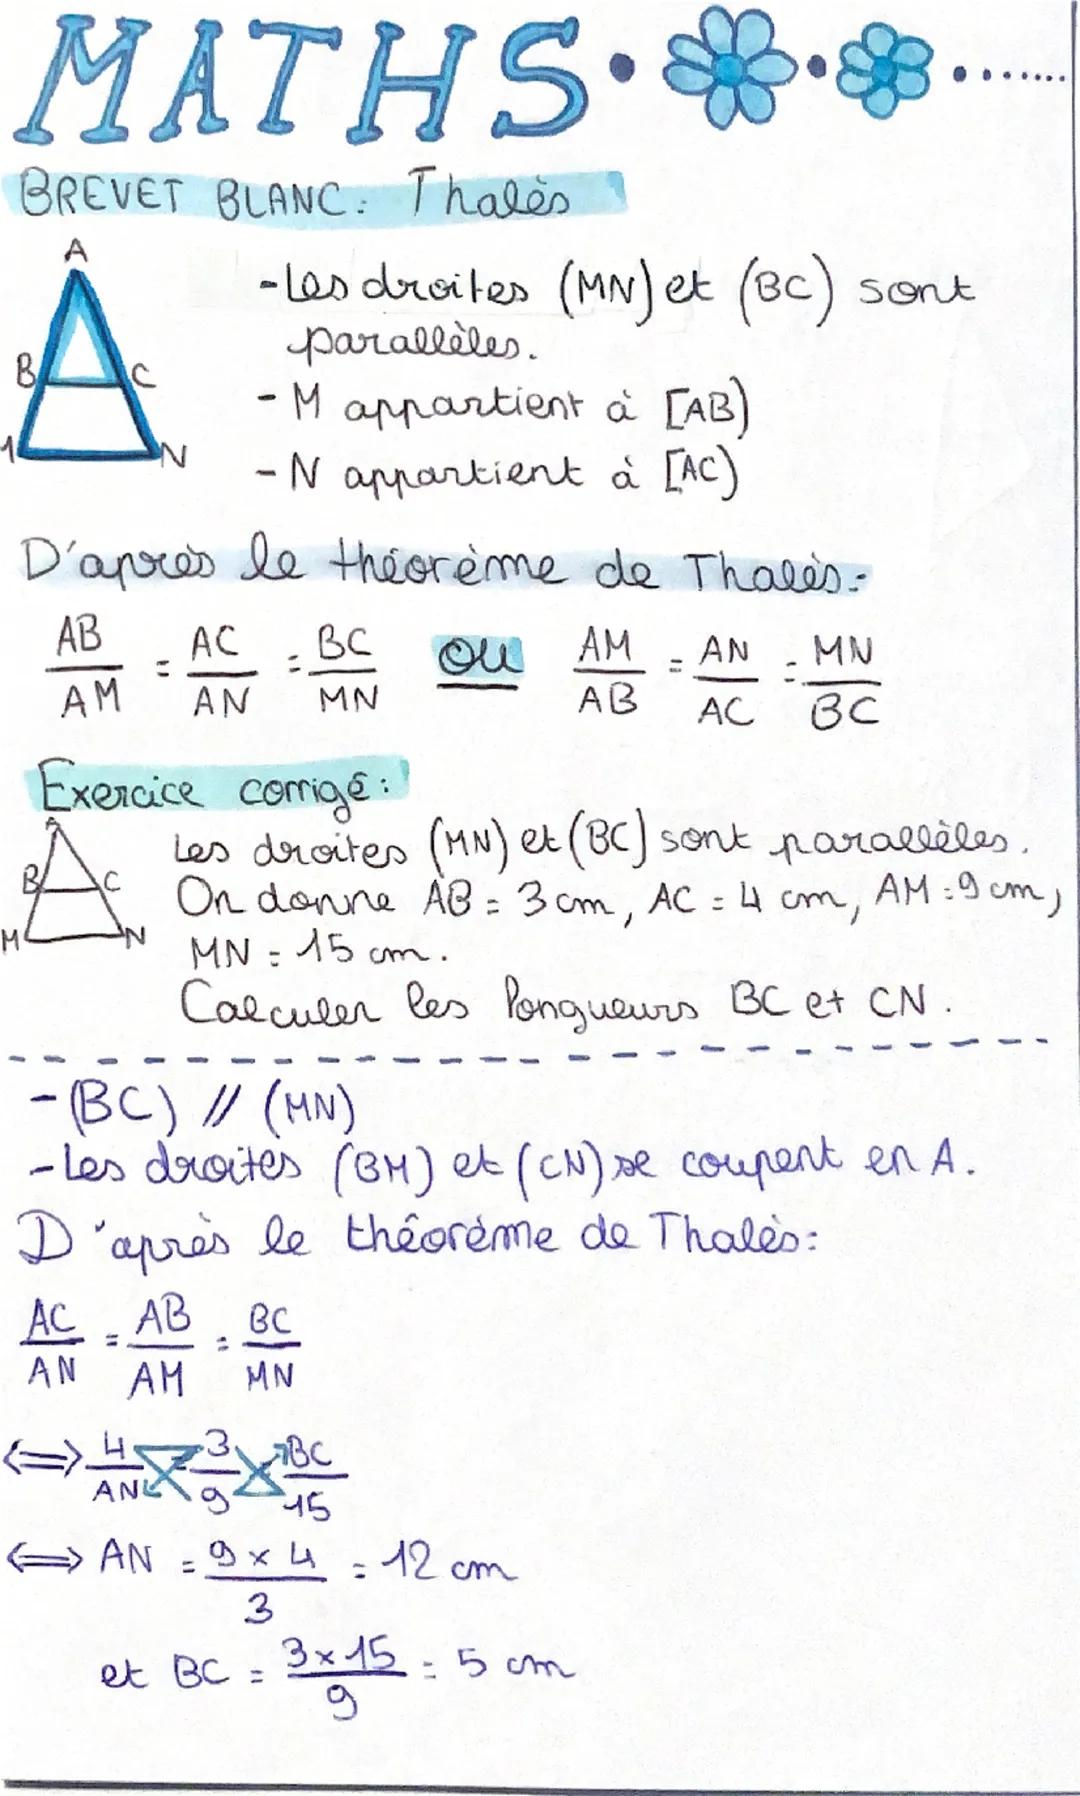 MATHS
BREVET BLANC: Thalès
A
B C
N
- Les droites (MN) et (BC) sont
parallèles.
- M appartient à [AB)
- N appartient à [AC)
D'après le théorème de Thalès:
AB/AM = AC/AN = BC/MN ou AM/AB = AN/AC = MN/BC
Exercice corrigé:
A
B C
M N
Les droites (MN) et (BC) sont parallèles.
On donne AB = 3 cm, AC = 4 cm, AM = 9 cm,
MN = 15 cm.
Calculer les longueurs BC et CN.
- (BC) // (MN)
- Les droites (BM) et (CN) se coupent en A.
D'après le théorème de Thalès:
AC/AN = AB/AM = BC/MN
⟺ 4/AN = 3/9 = BC/15
⟺ AN = 9 × 4 / 3 = 12 cm
et BC = 3 × 15 / 9 = 5 cm